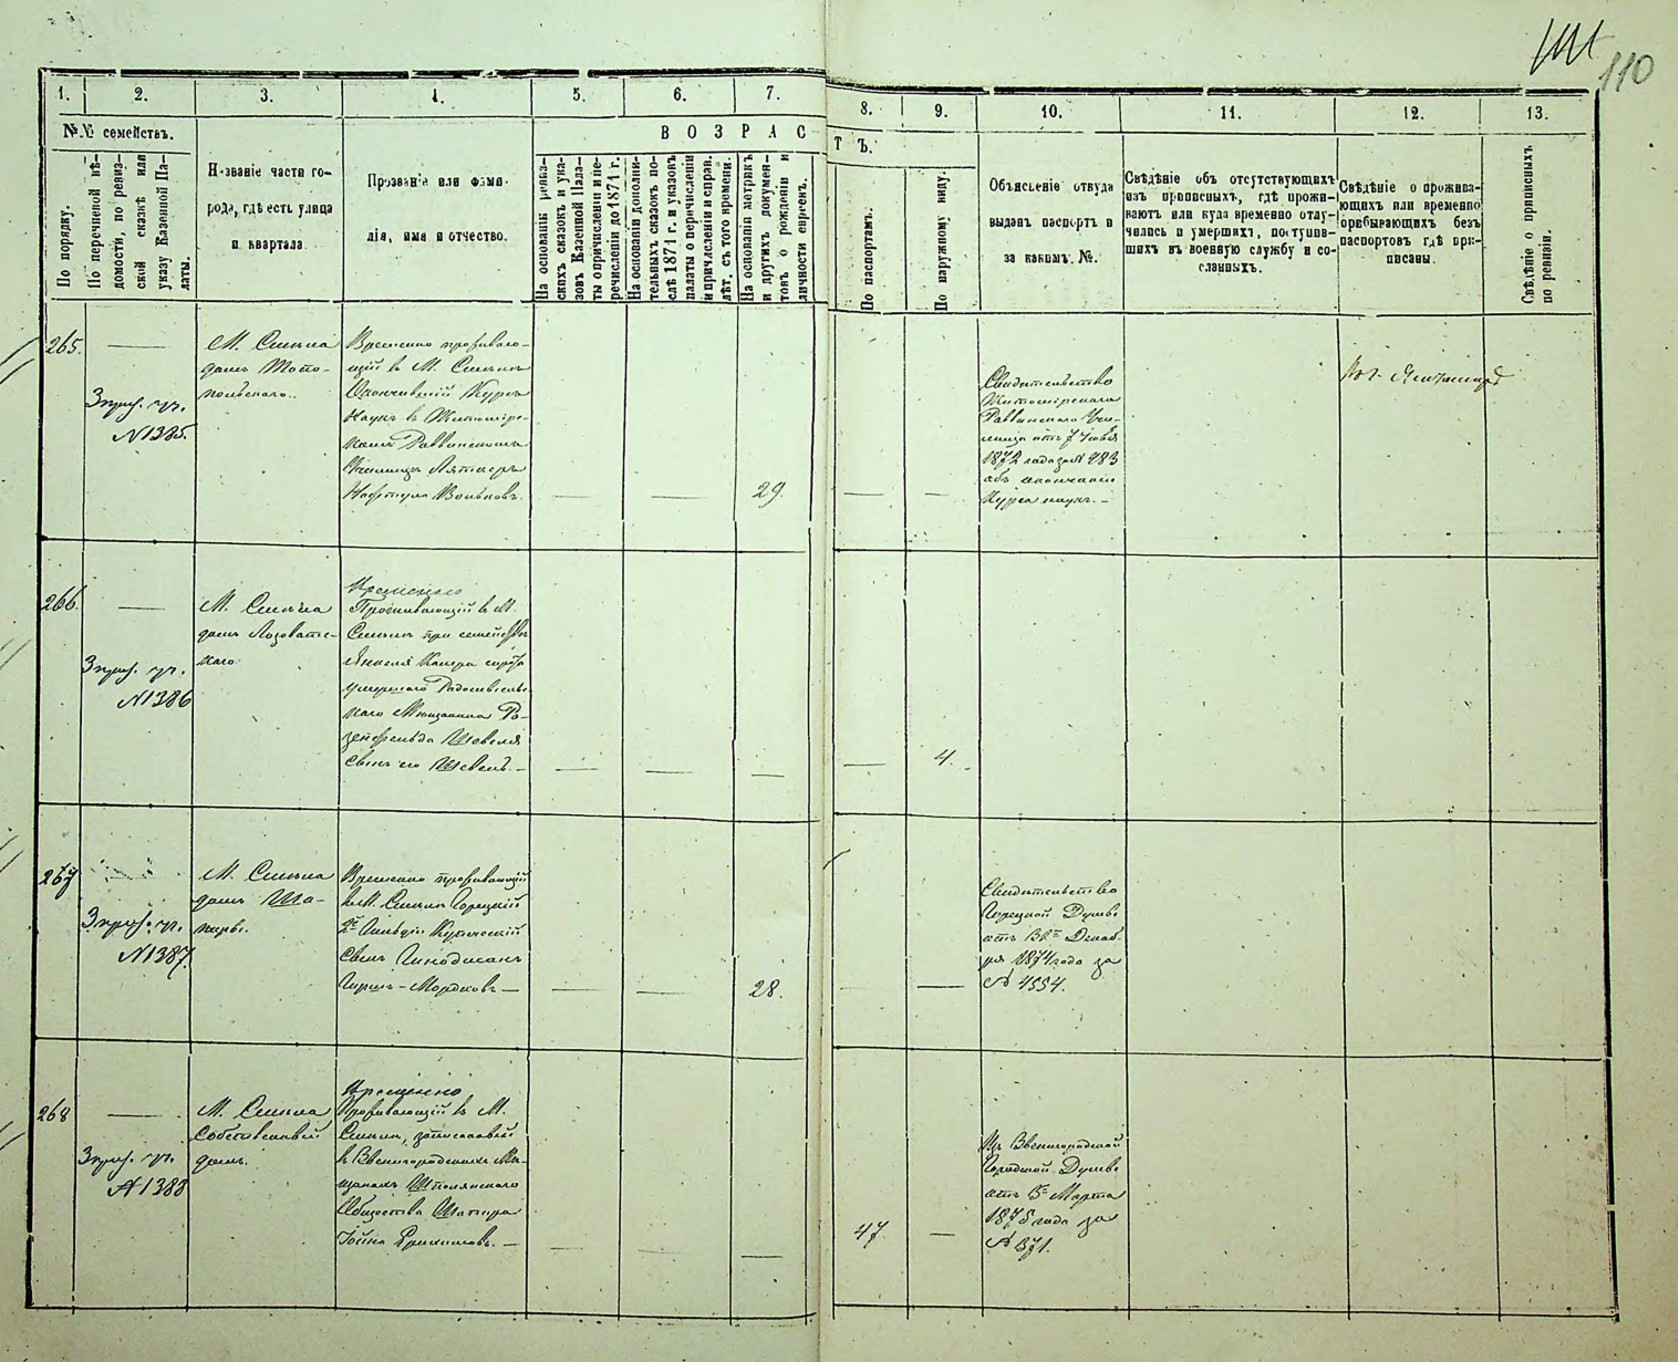 110
1. 2. 3. 4. 5. 6. 7. 8. 9. 10. 11. 12. 13.
№№ семействъ.
По порядку.
По перечневой вѣ-
домости, по ревиз-
ской сказкѣ или
указу Казенной Па-
латы.
Названіе части го-
рода, гдѣ есть улица
и квартала.
Прозваніе или фами-
лія, имя и отчество.
ВОЗРАСТЪ.
На основаніи ревиз-
скихъ сказокъ и ука-
зовъ Казенной Пала-
ты о причисленіи и пе-
речисленіи до 1871 г.
На основаніи дополни-
тельныхъ сказокъ по-
слѣ 1871 г. и указовъ
палаты о перечисленіи
и причисленіи и справ.
лѣт. съ того времени.
На основаніи метрикъ
и другихъ докумен-
товъ о рожденіи и
личности евреевъ.
По паспортамъ.
По наружному виду.
Объясненіе откуда
выданъ паспортъ и
за какимъ №.
Свѣдѣніе объ отсутствующихъ
изъ приписныхъ, гдѣ прожи-
ваютъ или куда временно отлу-
чились и умершихъ, поступив-
шихъ въ военную службу и со-
сланныхъ.
Свѣдѣніе о прожива-
ющихъ или временно
прибывающихъ безъ
паспортовъ гдѣ при-
писаны.
Свѣдѣніе о приписныхъ
по ревизіи.
265.
№1385.
М. Смѣла
домъ Топо-
польскаго.
Временно прожываю-
щій в М. Смѣлѣ
Окончившій Курсъ
Наукъ в Житомірс-
комъ Раввинскомъ
Училищѣ
Нафтула Вольковъ.
29.
Свидѣтельство
Житомірскаго
Раввинскаго Учи-
лища отъ 7
1872 года за № 483
объ окончаніи
Курса наукъ. —
266.
№1386
М. Смѣла
домъ Лозоватс-
каго.
Временно
Проживающій в М.
Смѣлѣ при семействѣ
Янкеля
умершаго
каго Мѣщанина Ро-
зенфельда Шевеля
Сынъ его —
4.
267
№1387.
М. Смѣла
домъ Ша-
пиры.
Временно проживающій
в М. Смѣлѣ Горецкій
2й Гильдіи Купеческій
Сынъ Гинодманъ
Гиршъ-Мордковъ —
28.
Свидѣтельство
Горецкой Думы
отъ Декаб-
ря 1874 года за
№ 4554.
268
№1388
М. Смѣла
Собственный
домъ.
Временно
Проживающій в М.
Смѣлѣ, записанный
в Звенигородскихъ Мѣ-
щанахъ Шполянскаго
Общества Шапира
47.
Изъ Звенигородской
Городской Думы
отъ Марта
1875 года за
№ 371.